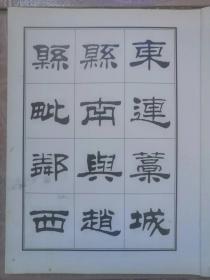 東連藁城
縣南與趙
縣毗鄰西